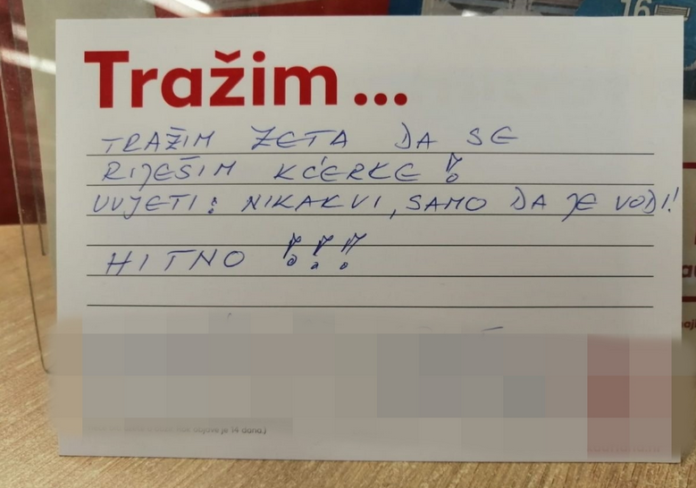 Tražim...
TRAŽIM ZETA DA SE
RIJEŠIM KĆERKE!
UVJETI: NIKAKVI, SAMO DA JE VODI!
HITNO !!!
je 14 dana.)
16